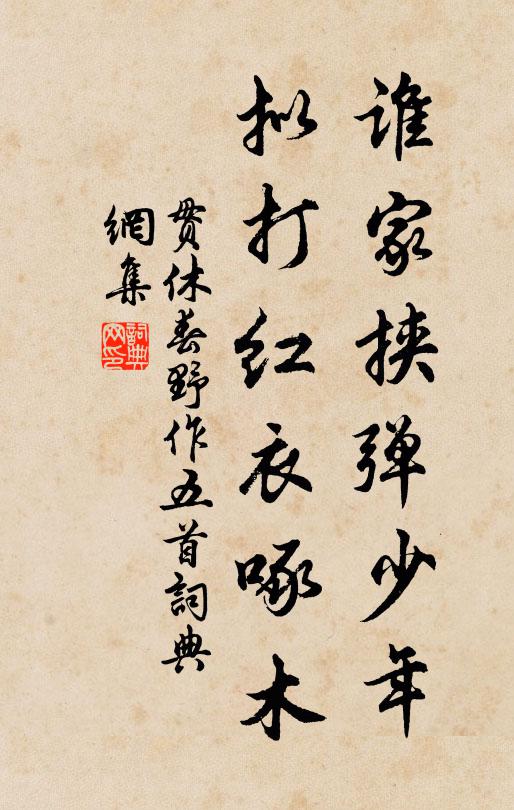 谁家挟弹少年
拟打红衣啄木
贯休春野作五首詞典
網集
詞典
网印